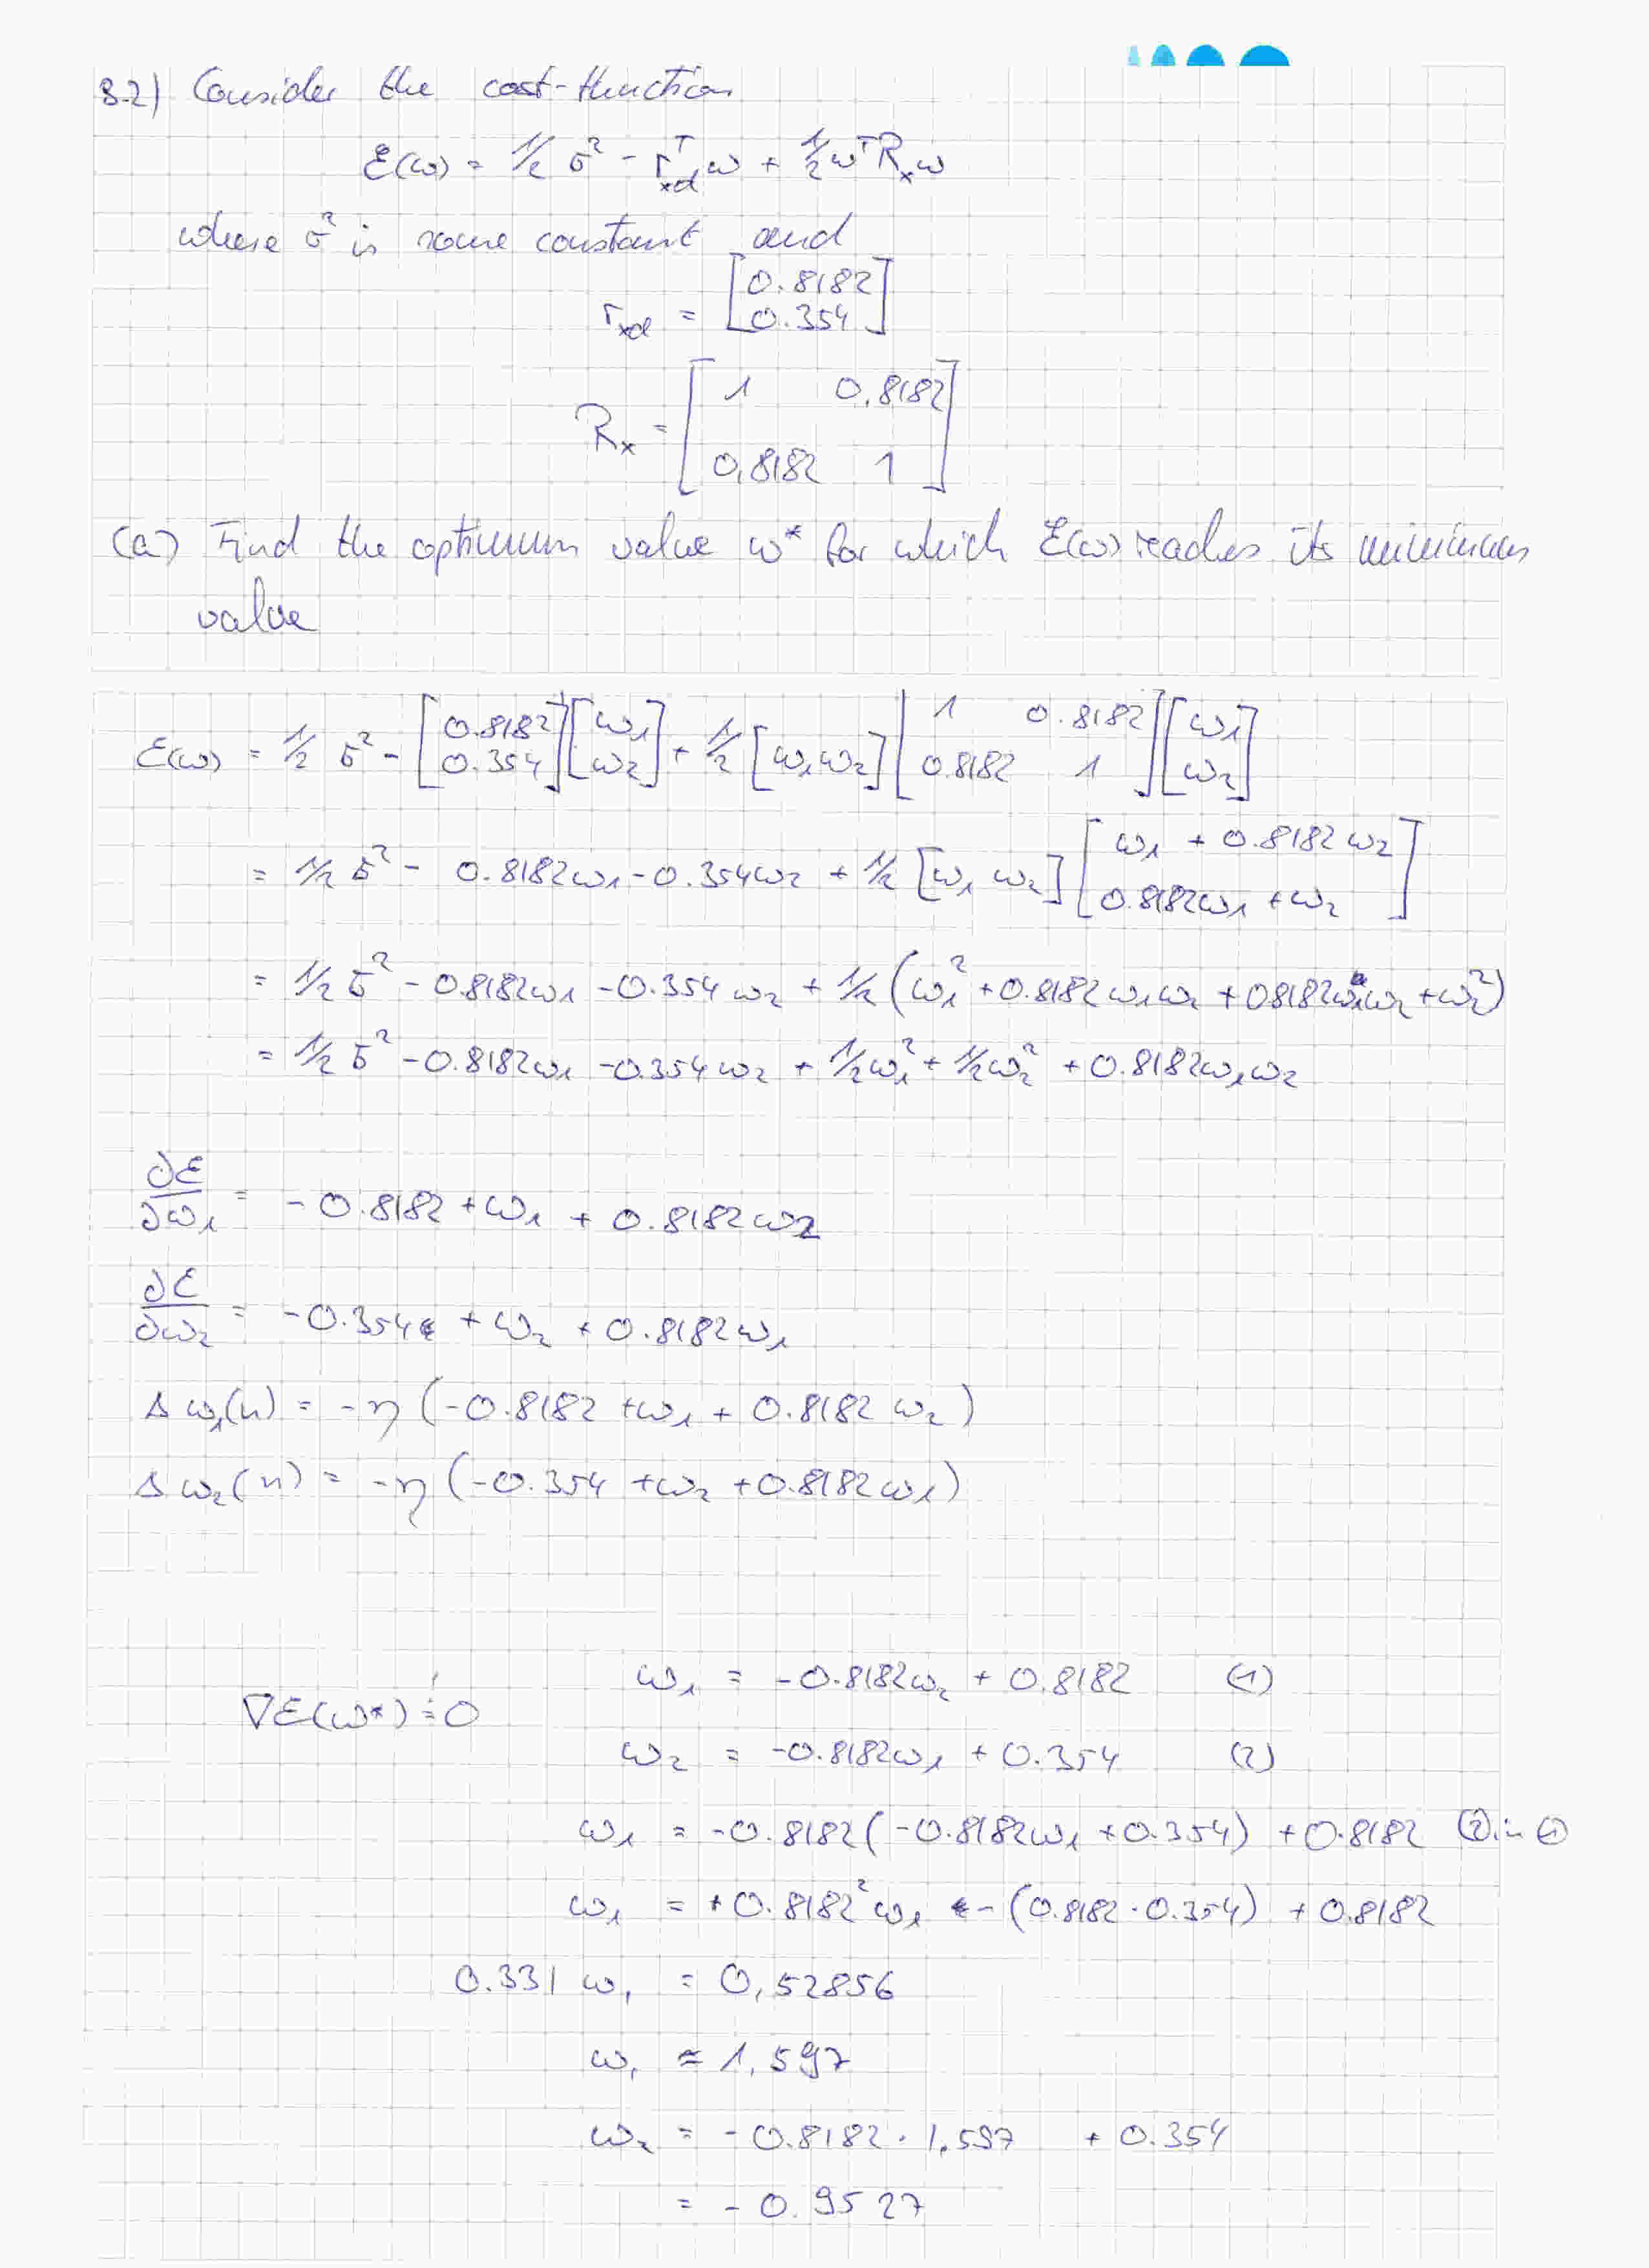 3.2) Consider the cost-function
ℰ(ω) = 1/2 σ² - r_xd^T ω + 1/2 ω^T R_x ω
where σ² is some constant and
r_xd = [0.8182
0.354]
R_x = [1 0.8182
0,8182 1]
(a) Find the optimum value ω* for which ℰ(ω) reaches its minimum
value
ℰ(ω) = 1/2 σ² - [0.8182 0.354][ω1 ω2] + 1/2 [ω1 ω2] [1 0.8182 0.8182 1] [ω1 ω2]
= 1/2 σ² - 0.8182ω1 - 0.354ω2 + 1/2 [ω1 ω2] [ω1 + 0.8182ω2 0.8182ω1 + ω2]
= 1/2 σ² - 0.8182ω1 - 0.354ω2 + 1/2 (ω1² + 0.8182ω1ω2 + 0.8182ω1ω2 + ω2²)
= 1/2 σ² - 0.8182ω1 - 0.354ω2 + 1/2ω1² + 1/2ω2² + 0.8182ω1ω2
∂ℰ/∂ω1 = - 0.8182 + ω1 + 0.8182ω2
∂ℰ/∂ω2 = - 0.354 + ω2 + 0.8182ω1
Δω1(n) = -η (-0.8182 + ω1 + 0.8182 ω2)
Δω2(n) = -η (-0.354 + ω2 + 0.8182ω1)
∇ℰ(ω*) != 0
ω1 = -0.8182ω2 + 0.8182 (1)
ω2 = -0.8182ω1 + 0.354 (2)
ω1 = -0.8182(-0.8182ω1 + 0.354) + 0.8182 (2) in (1)
ω1 = +0.8182²ω1 - (0.8182 · 0.354) + 0.8182
0.331 ω1 = 0,52856
ω1 ≈ 1,597
ω2 = - 0.8182 · 1.597 + 0.354
= - 0.9527